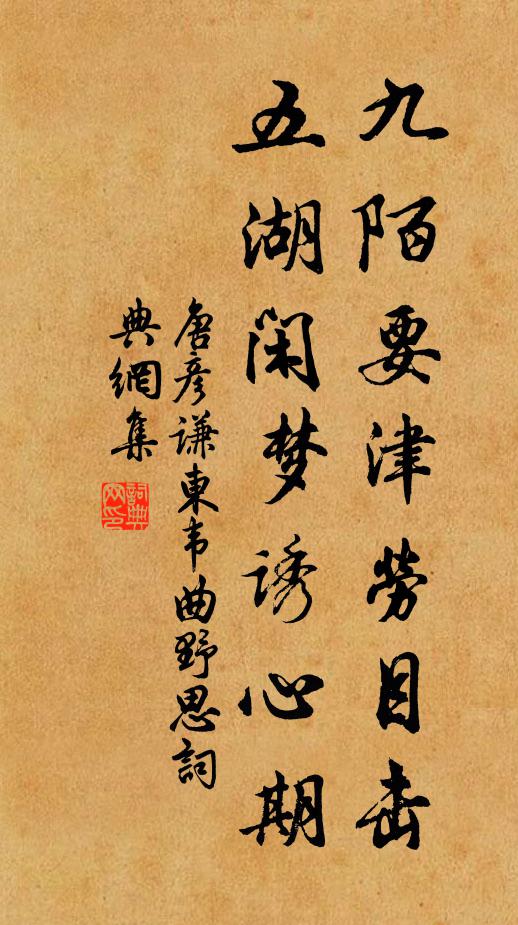 九陌要津勞目击
五湖闲梦诱心期
唐彦谦東韦曲野思詞
典網集
詞典网印